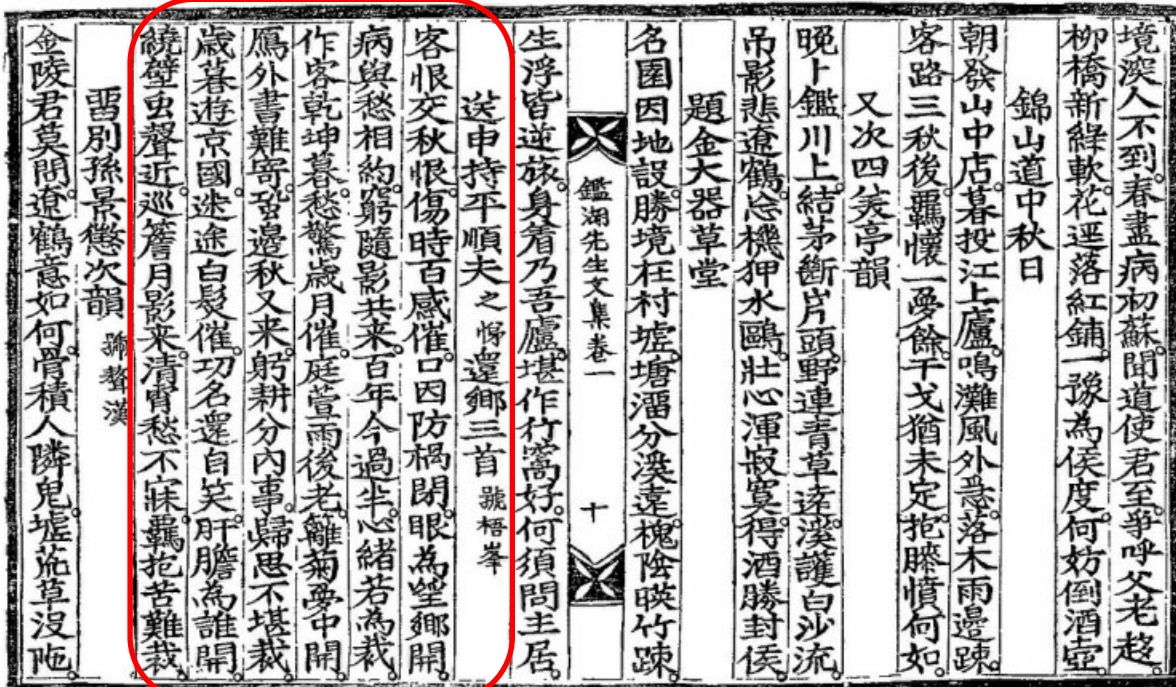 境深人不到春盡病初蘇聞道使君至爭呼父老趍
柳橋新綠軟花逕落紅鋪一豫為侯度何妨倒酒壺
錦山道中秋日
朝發山中店暮投江上廬鳴灘風外急落木雨邊踈
客路三秋後羈懷一夢餘干戈猶未定抱膝憤何如
又次四美亭韻
晩卜鑑川上結茅斷片頭野連青草逺溪護白沙流
吊影悲遼鶴忘機狎水鷗壯心渾寂寞得酒勝封侯
題金大器草堂
名園因地設勝境在村墟塘溜分溪遠槐陰暎竹踈
鑑湖先生文集卷一
十
生浮皆逆旅身着乃吾廬堪作行窩好何須問主居
送申持平順夫之悌還鄉三首號梧峯
客恨交秋恨傷時百感催口因防禍閉眼為望鄉開
病與愁相約窮隨影共来百年今過半心緒若為裁
作客乾坤暮愁驚歲月催庭萱雨後老籬菊夢中開
鴈外書難寄蛩邊秋又来躬耕分內事歸思不堪裁
歲暮遊京國迷途白髮催功名還自笑肝膽為誰開
繞壁虫聲近巡簷月影来清宵愁不寐羈抱苦難裁
畱別孫景懲次韻號聱漢
金陵君莫問遼鶴意如何骨積人隣鬼墟荒草沒陁